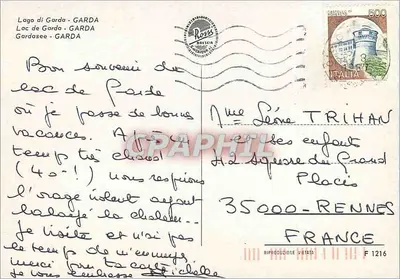 Lago di Garda - GARDA
Lac de Garda - GARDA
Gardasee - GARDA
Bon souvenir du
lac de Garde
où je passe de bonnes
vacances.
temps très chaud
(40° !) nous respirons
l'orage violent ayant
balayé la chaleur
Je visite et n'ai pas
le temps de m'ennuyer.
merci pour ta carte
Je vous embrasse
500
ITALIA
Mme Léone TRIHAN
et ses enfants
Square du Grand
Placis
35000 - RENNES
FRANCE
RIPRODUZIONE VIETATA
F 1216
CPAPHIL